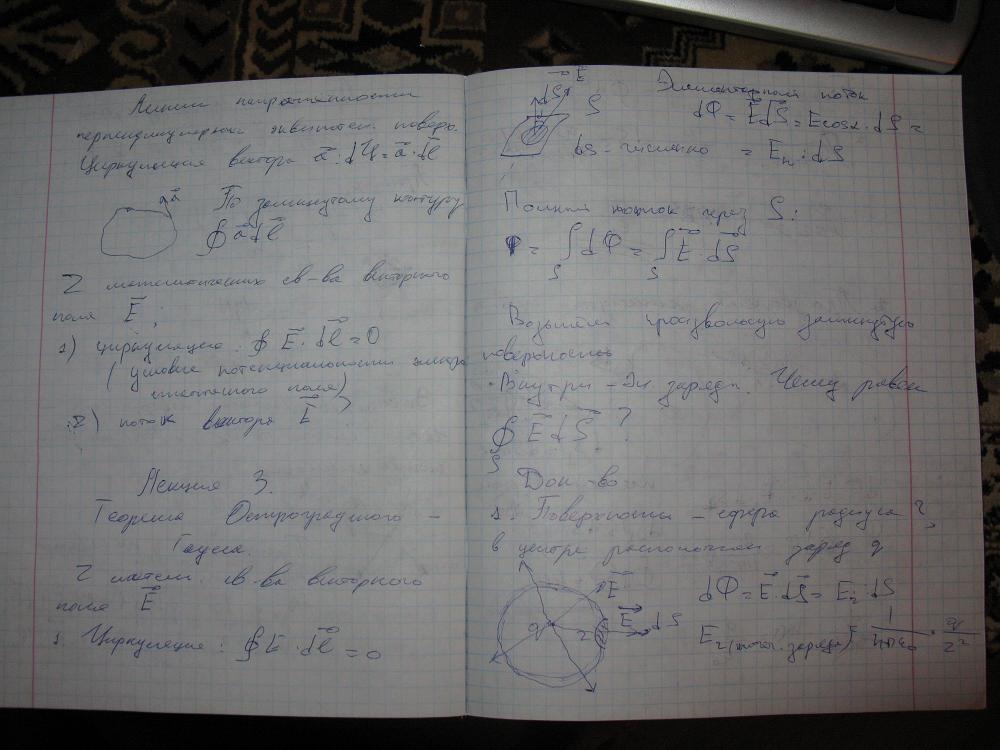 Линии напряжённости
перпендикулярны эквипотен. поверх.
Циркуляция вектора a⃗: dЦ = a⃗·dl⃗
a⃗
По замкнутому контуру
∮ a⃗ dl⃗
2 математических св-ва векторного
поля E⃗:
1) циркуляция: ∮ E⃗·dl⃗ = 0
(условие потенциальности электро
статического поля)
2) поток вектора E⃗
Лекция 3.
Теорема Остроградского –
Гаусса.
2 матем. св-ва векторного
поля E⃗
1. Циркуляция: ∮ E·dl⃗ = 0
E⃗
dS⃗
S
Элементарный поток
dФ = E⃗dS⃗ = Ecosα·dS =
dS – численно = Eₙ·dS
Полный поток через S:
Ф = ∫ dФ = ∫ E⃗·dS⃗
S S
Возьмём произвольную замкнутую
поверхность
Внутри – эл. заряды. Чему равен
∮ E⃗dS⃗ ?
S
Док-во
1. Поверхность – сфера радиуса r,
в центре расположен заряд q
E⃗
q r E⃗ dS
dФ = E⃗·dS⃗ = Eᵣ·dS
Eᵣ(точ. заряда) = 1/4πε₀ · q/r²